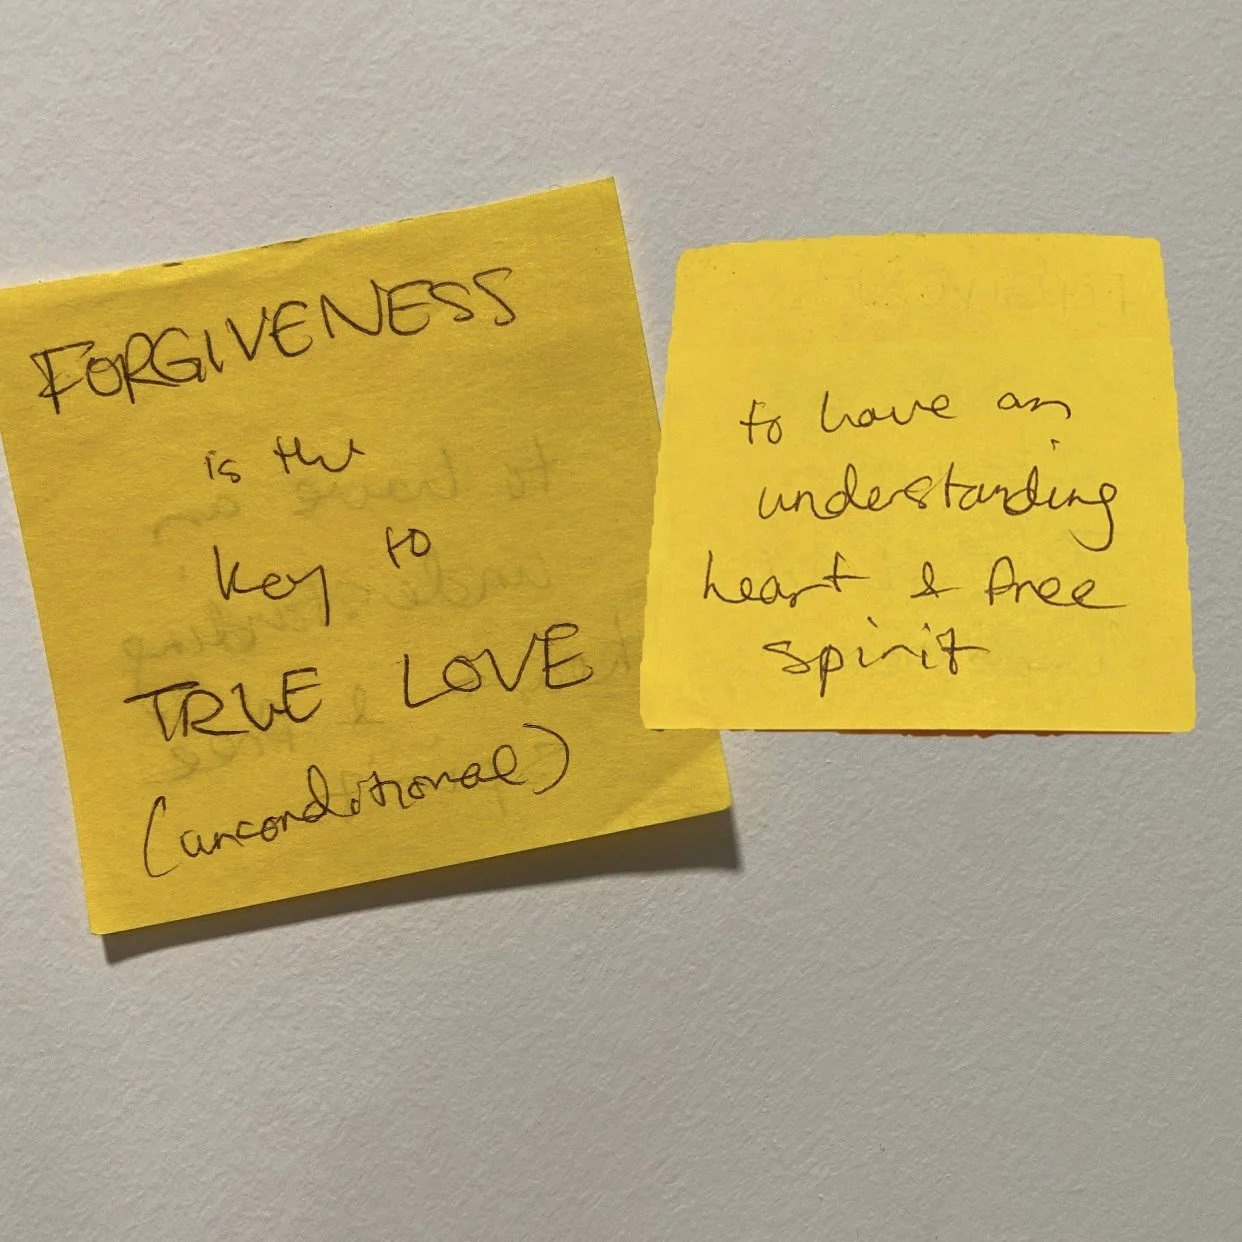 FORGIVENESS
is the
key to
TRUE LOVE
(unconditional)
to have an
understanding
heart & free
spirit